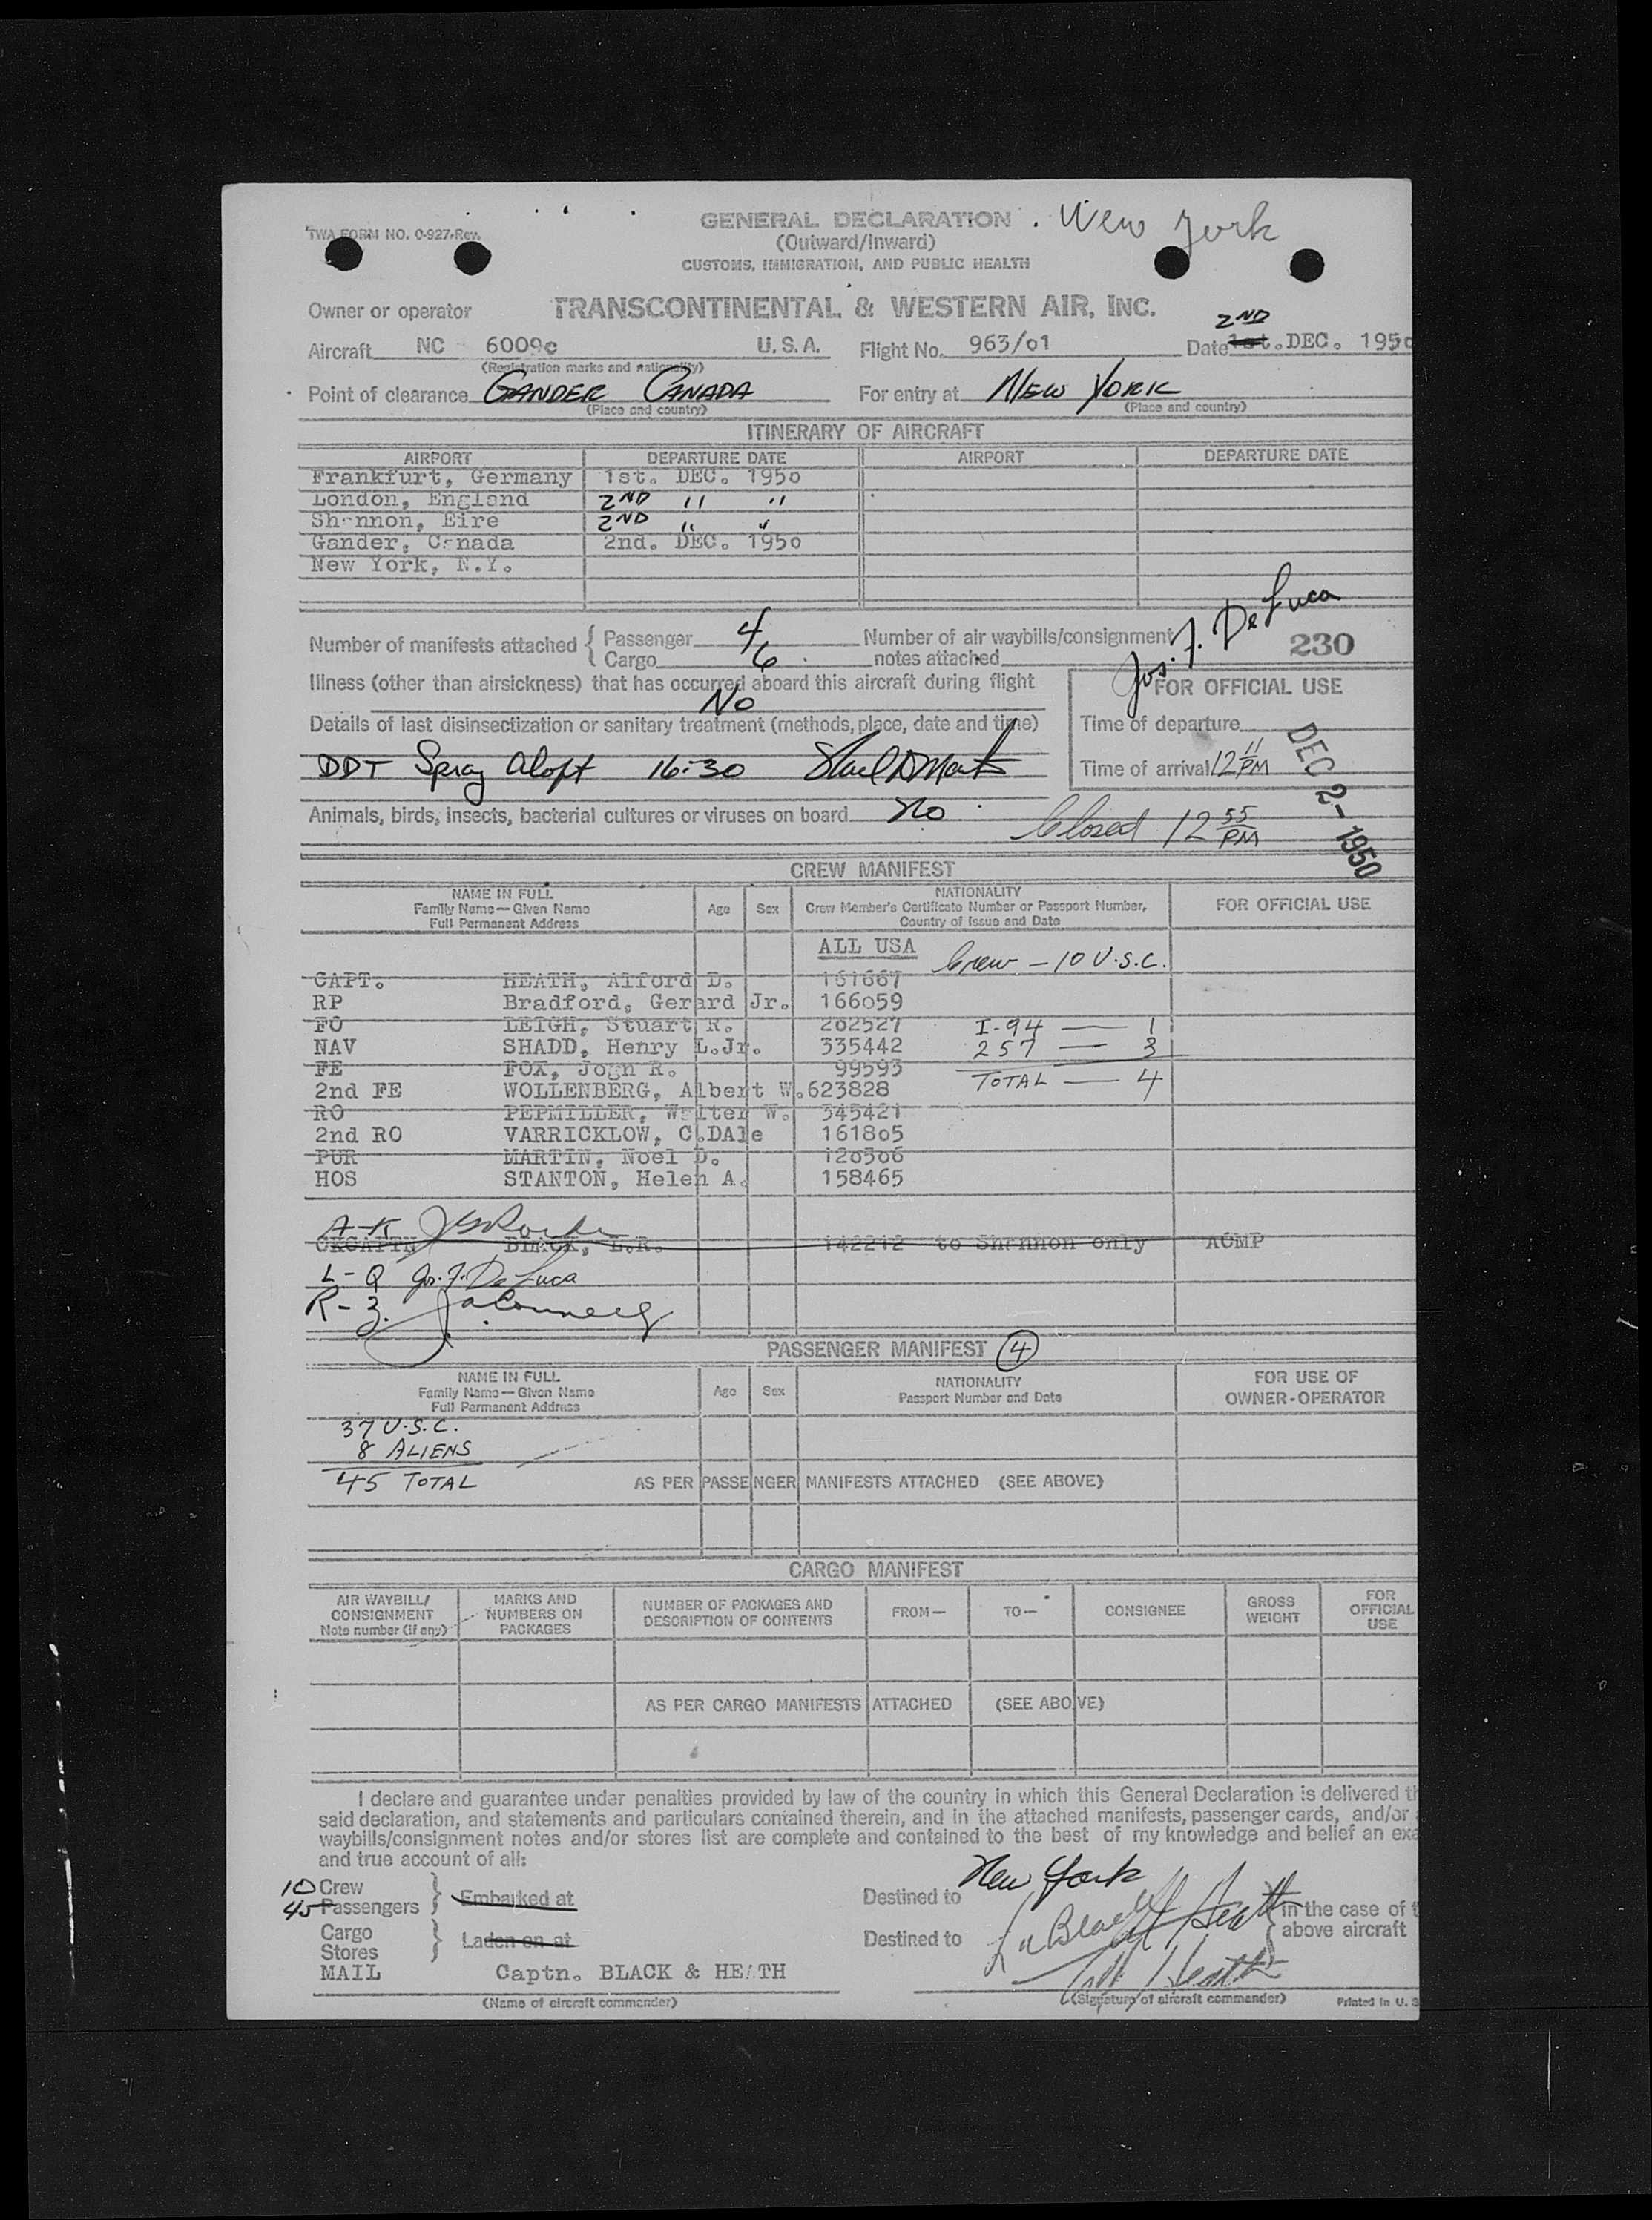 TWA FORM NO. O-927-Rev.
GENERAL DECLARATION
New York
(Outward/Inward)
CUSTOMS, IMMIGRATION, AND PUBLIC HEALTH
Owner or operator TRANSCONTINENTAL & WESTERN AIR, INC.
2ND
Aircraft NC 6009c U.S.A. Flight No. 963/01 Date 1st. DEC. 1950
(Registration marks and nationality)
Point of clearance GANDER CANADA For entry at NEW YORK
(Place and country) (Place and country)
ITINERARY OF AIRCRAFT
AIRPORT DEPARTURE DATE AIRPORT DEPARTURE DATE
Frankfurt, Germany 1st. DEC. 1950
London, England 2ND " "
Shannon, Eire 2ND " "
Gander, Canada 2nd. DEC. 1950
New York, N.Y.
Jos. J. De Luca
Number of manifests attached { Passenger 4 Number of air waybills/consignment 230
Cargo 6 notes attached
Illness (other than airsickness) that has occurred aboard this aircraft during flight
No
FOR OFFICIAL USE
Details of last disinsectization or sanitary treatment (methods, place, date and time)
Time of departure
DDT Spray aloft 16:30
Time of arrival 12 11 PM
DEC 2-1950
Animals, birds, insects, bacterial cultures or viruses on board No
Closed 12 55 PM
CREW MANIFEST
NAME IN FULL
Family Name—Given Name
Full Permanent Address
Age Sex
NATIONALITY
Crew Member's Certificate Number or Passport Number,
Country of Issue and Date
FOR OFFICIAL USE
ALL USA
Crew - 10 U.S.C.
CAPT. HEATH, Alford D. 161667
RP Bradford, Gerard Jr. 166059
FO LEIGH, Stuart R. 202527 I-94 — 1
NAV SHADD, Henry L.Jr. 335442 257 — 3
FE FOX, Jogn R. 99593 TOTAL — 4
2nd FE WOLLENBERG, Albert W. 623828
RO PEPMILLER, Walter W. 345421
2nd RO VARRICKLOW, C.DAle 161805
PUR MARTIN, Noel D. 120306
HOS STANTON, Helen A. 158465
A-K
CKCAPTN BLACK, L.R. 142212 to Shannon only ACMP
L-Q Jos. J. De Luca
R-Z.
PASSENGER MANIFEST 4
NAME IN FULL
Family Name—Given Name
Full Permanent Address
Age Sex
NATIONALITY
Passport Number and Date
FOR USE OF
OWNER-OPERATOR
37 U.S.C.
8 ALIENS
45 TOTAL AS PER PASSENGER MANIFESTS ATTACHED (SEE ABOVE)
CARGO MANIFEST
AIR WAYBILL/
CONSIGNMENT
Note number (if any)
MARKS AND
NUMBERS ON
PACKAGES
NUMBER OF PACKAGES AND
DESCRIPTION OF CONTENTS
FROM—
TO—
CONSIGNEE
GROSS
WEIGHT
FOR
OFFICIAL
USE
AS PER CARGO MANIFESTS ATTACHED (SEE ABOVE)
I declare and guarantee under penalties provided by law of the country in which this General Declaration is delivered th
said declaration, and statements and particulars contained therein, and in the attached manifests, passenger cards, and/or
waybills/consignment notes and/or stores list are complete and contained to the best of my knowledge and belief an exa
and true account of all:
10 Crew
45 Passengers } Embarked at Destined to New York
in the case of t
above aircraft
Cargo
Stores } Laden on at Destined to
L R Black
A D Heath
MAIL Captn. BLACK & HEATH
(Name of aircraft commander) (Signature of aircraft commander) Printed in U. S